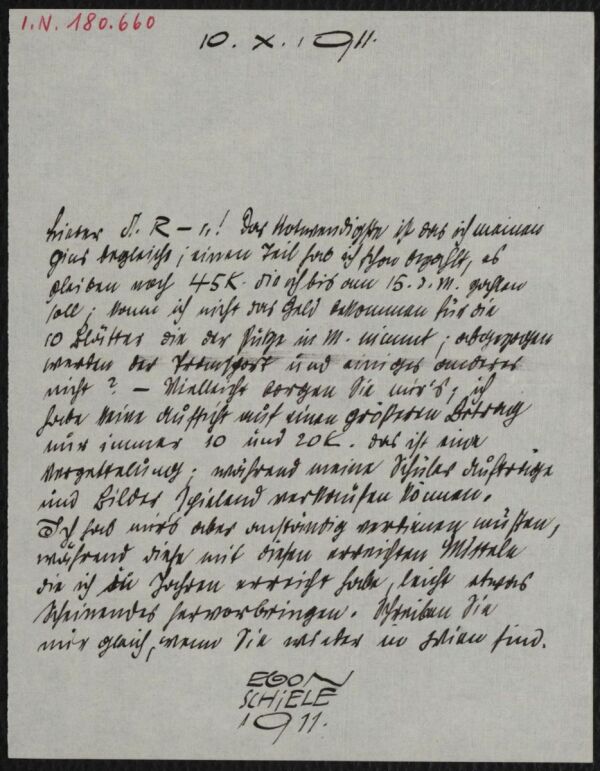 I.N. 180.660
10. X. 1911.
Lieber A. R – r.! Das Notwendigste ist das ich meinen
Zins begleiche; einen Teil hab ich schon bezahlt, es
bleiben noch 45 K. die ich bis am 15. d. M. zahlen
soll; kann ich nicht das Geld bekommen für die
10 Blätter die der in M. nimmt; abgezogen
werden der Transport und einiges anderes
nicht? – Vielleicht borgen Sie mir's, ich
habe keine Aussicht auf einen größeren Betrag
nur immer 10 und 20 K. das ist eine
Verzettelung; während meine Schüler Aufträge
und Bilder spielend verkaufen können.
Ich hab mirs aber anständig verdienen müssen,
während diese mit diesen erreichten Mitteln
die ich in Jahren erreicht habe, leicht etwas
Scheinendes hervorbringen. Schreiben Sie
mir gleich, wenn Sie wieder in Wien sind.
EGON
SCHIELE
1911.